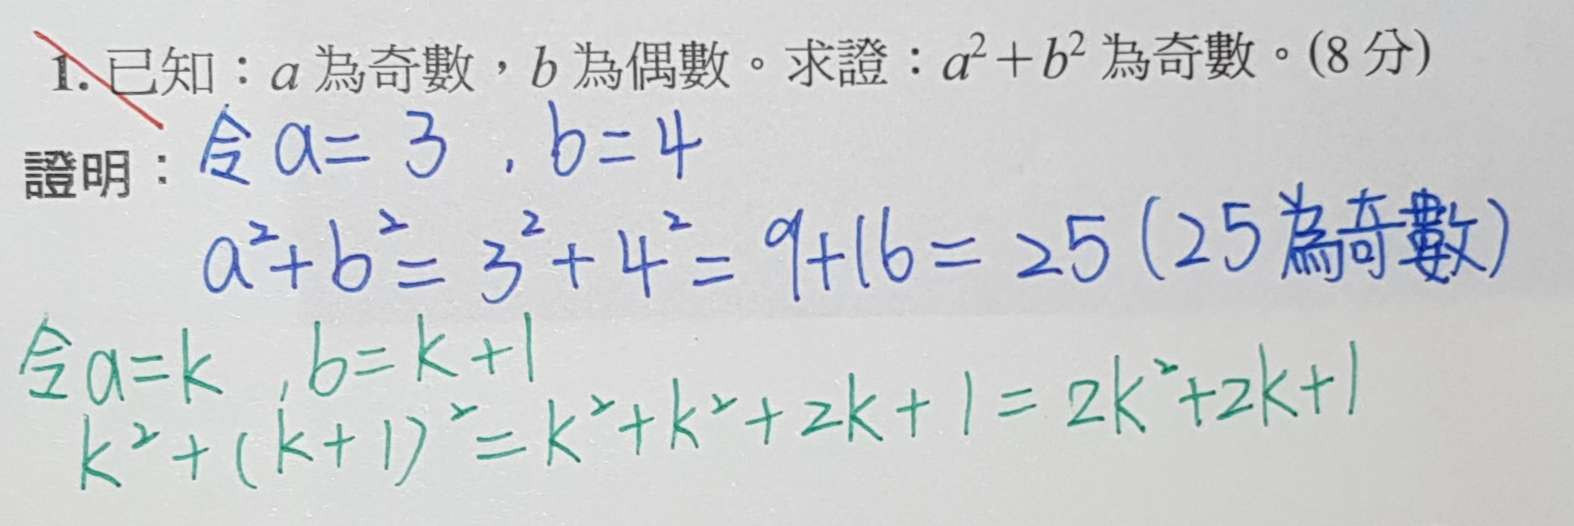 1. 已知：a 為奇數，b 為偶數。求證：a²+b² 為奇數。(8 分)
證明：令 a=3 , b=4
a²+b²=3²+4²=9+16=25 (25為奇數)
令a=k , b=k+1
k²+(k+1)²=k²+k²+2k+1=2k²+2k+1